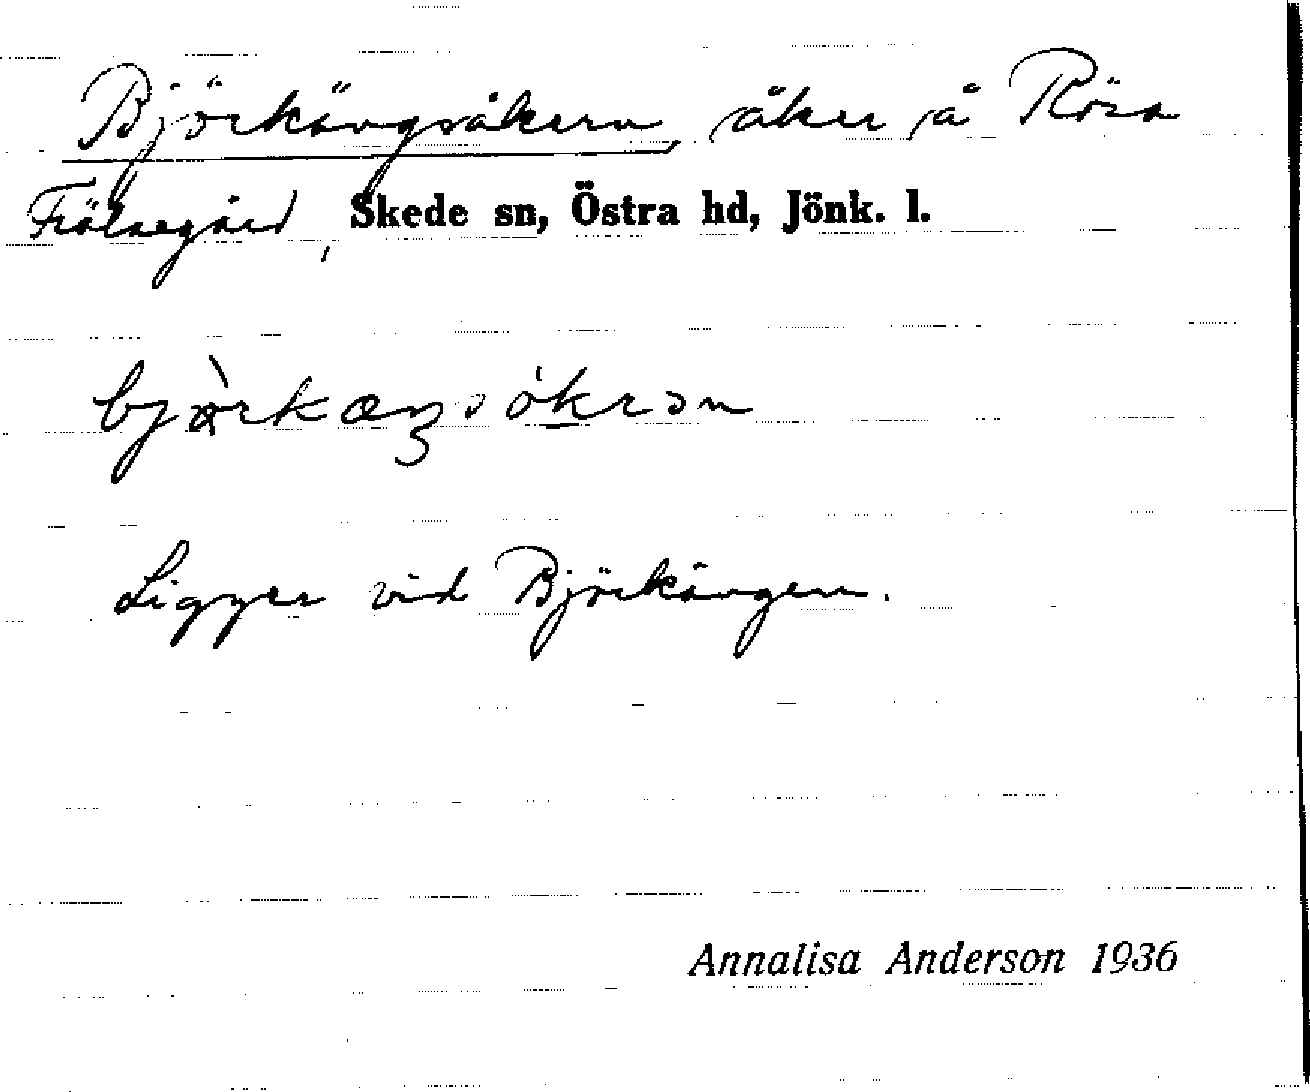 Björkängsåkern, åker å Rösa
Frälsegård, Skede sn, Östra hd, Jönk. l.
Ligger vid Björkängen.
Annalisa Anderson 1936